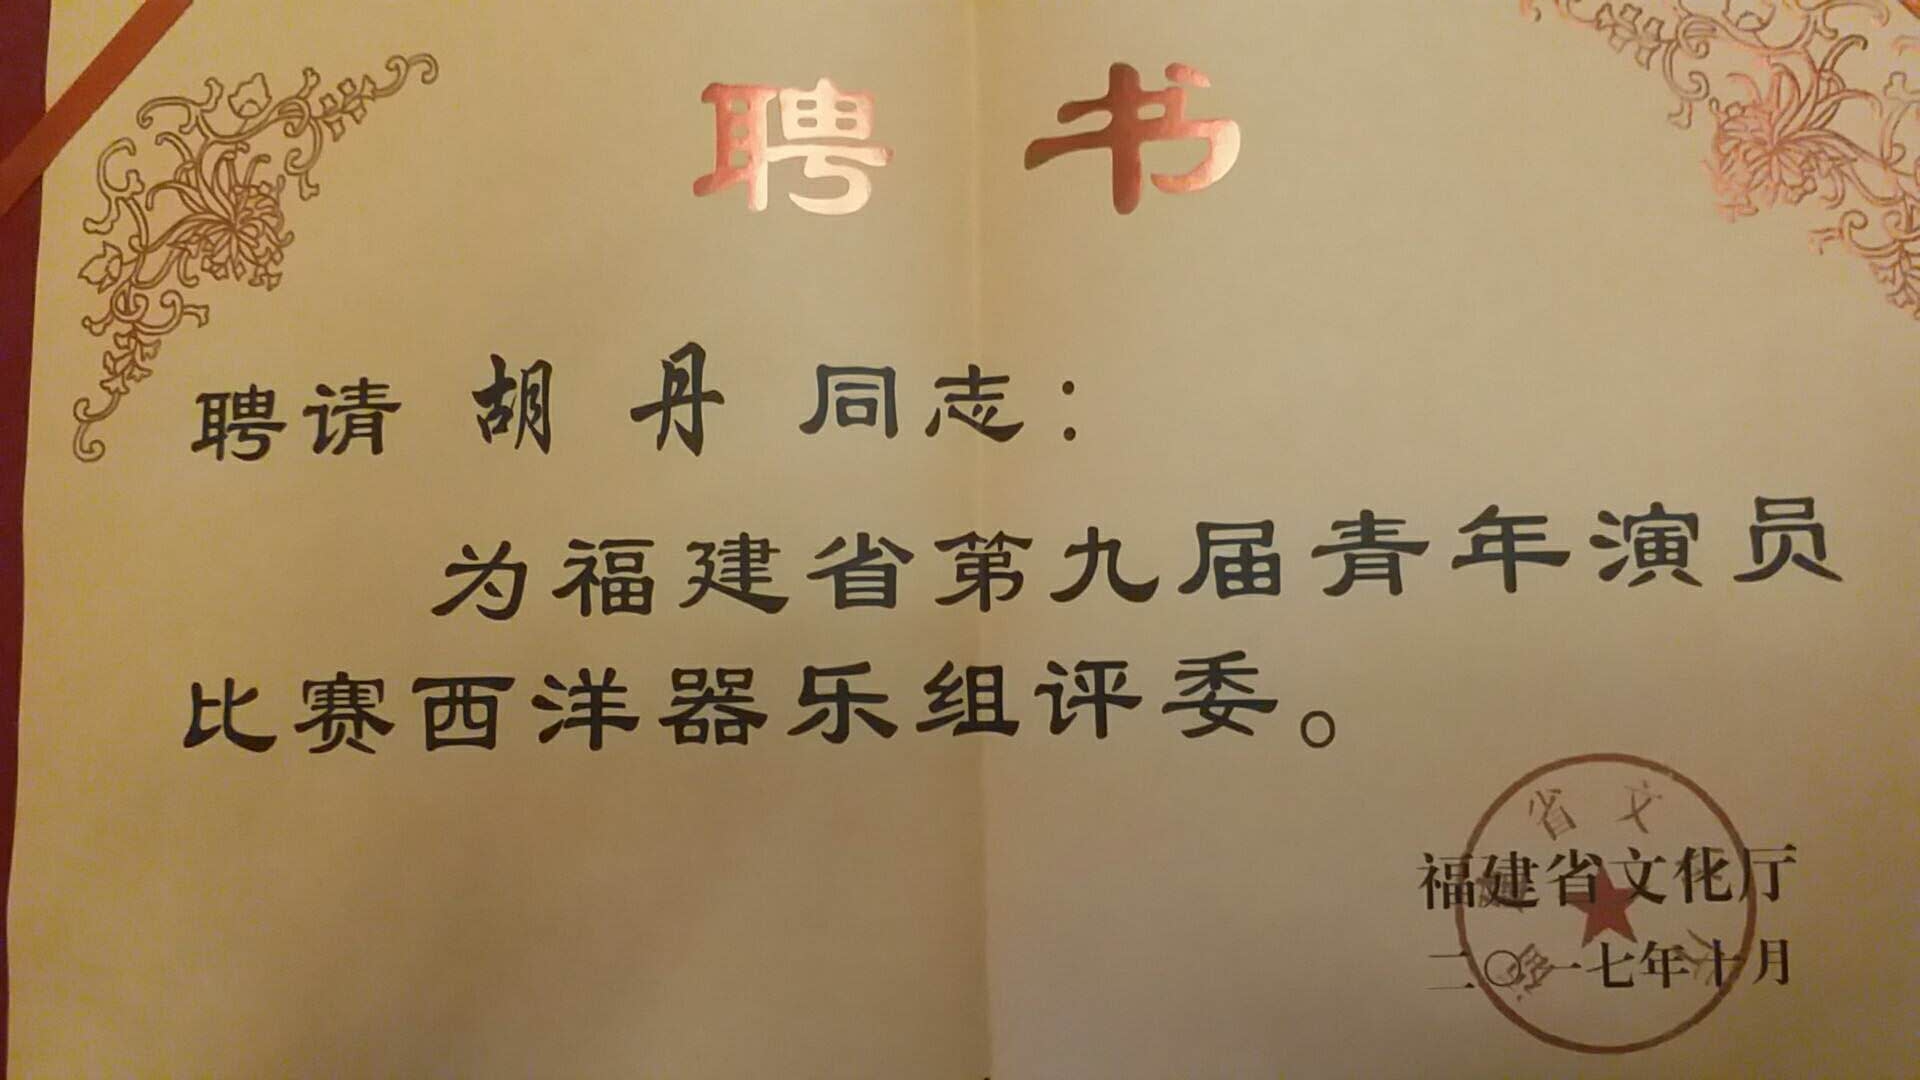 聘书
聘请 胡丹 同志：
为福建省第九届青年演员
比赛西洋器乐组评委。
福建省文化厅
二〇一七年十月
福建省文化厅